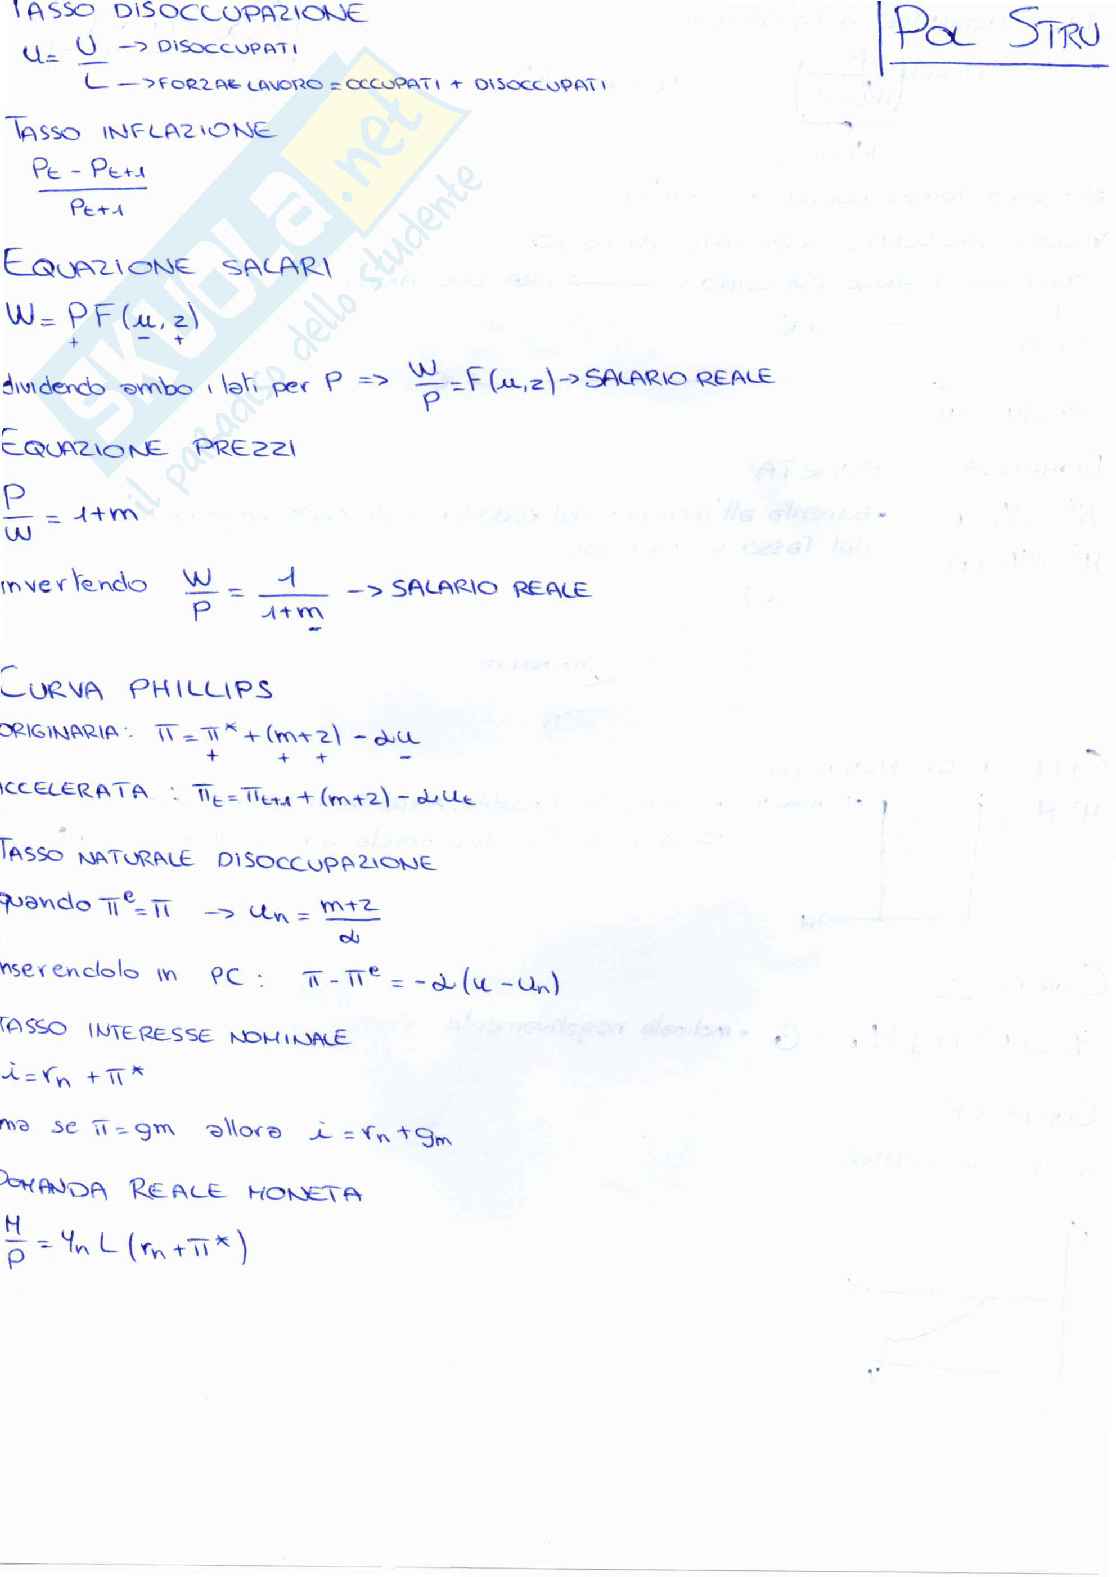 TASSO DISOCCUPAZIONE
POL STRU
u = U/L → DISOCCUPATI
→ FORZAE LAVORO = OCCUPATI + DISOCCUPATI
TASSO INFLAZIONE
(Pt - Pt+1) / Pt+1
EQUAZIONE SALARI
W = P F(u, z)
+ - +
dividendo ambo i lati per P => W/P = F(u, z) → SALARIO REALE
EQUAZIONE PREZZI
P/W = 1+m
invertendo W/P = 1/(1+m) → SALARIO REALE
-
CURVA PHILLIPS
ORIGINARIA: π = π* + (m+z) - αu
+ + + -
ACCELERATA : πt = πt+1 + (m+z) - αut
TASSO NATURALE DISOCCUPAZIONE
quando πe = π → un = (m+z)/α
inserendolo in PC : π - πe = -α(u - un)
TASSO INTERESSE NOMINALE
i = rn + π*
ma se π = gm allora i = rn + gm
DOMANDA REALE MONETA
M/P = Yn L (rn + π*)
SKUOLA.net
il paradiso dello studente